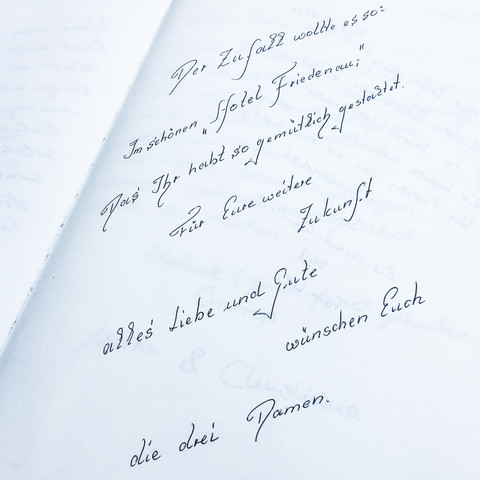 Der Zufall wollte es so:
Im schönen "Hotel Friedenau;"
Das Ihr habt so gemütlich gestaltet.
Für Eure weitere
Zukunft
alles Liebe und Gute
wünschen Euch
die drei Damen.
& Christine